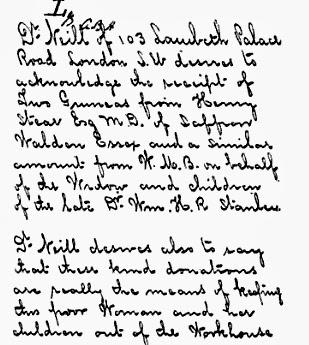 Dr. Neill of 103 Lambeth Palace
Road London S.W desires to
acknowledge the receipt of
Two Guineas from Henry
Stear Esq M.D. of Saffron
Walden Essex and a similar
amount from W. M. B. on behalf
of the Widow and children
of the late Dr. Wm. H. R Stanley
Dr. Neill desires also to say
that these kind donations
are really the means of keeping
this poor Woman and her
children out of the Workhouse